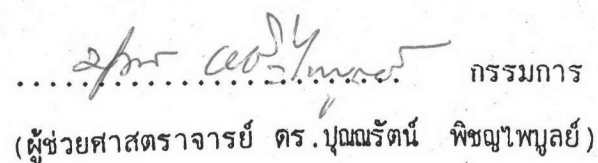 .......................... กรรมการ
(ผู้ช่วยศาสตราจารย์ ดร.ปุณณรัตน์ พิชญไพบูลย์)